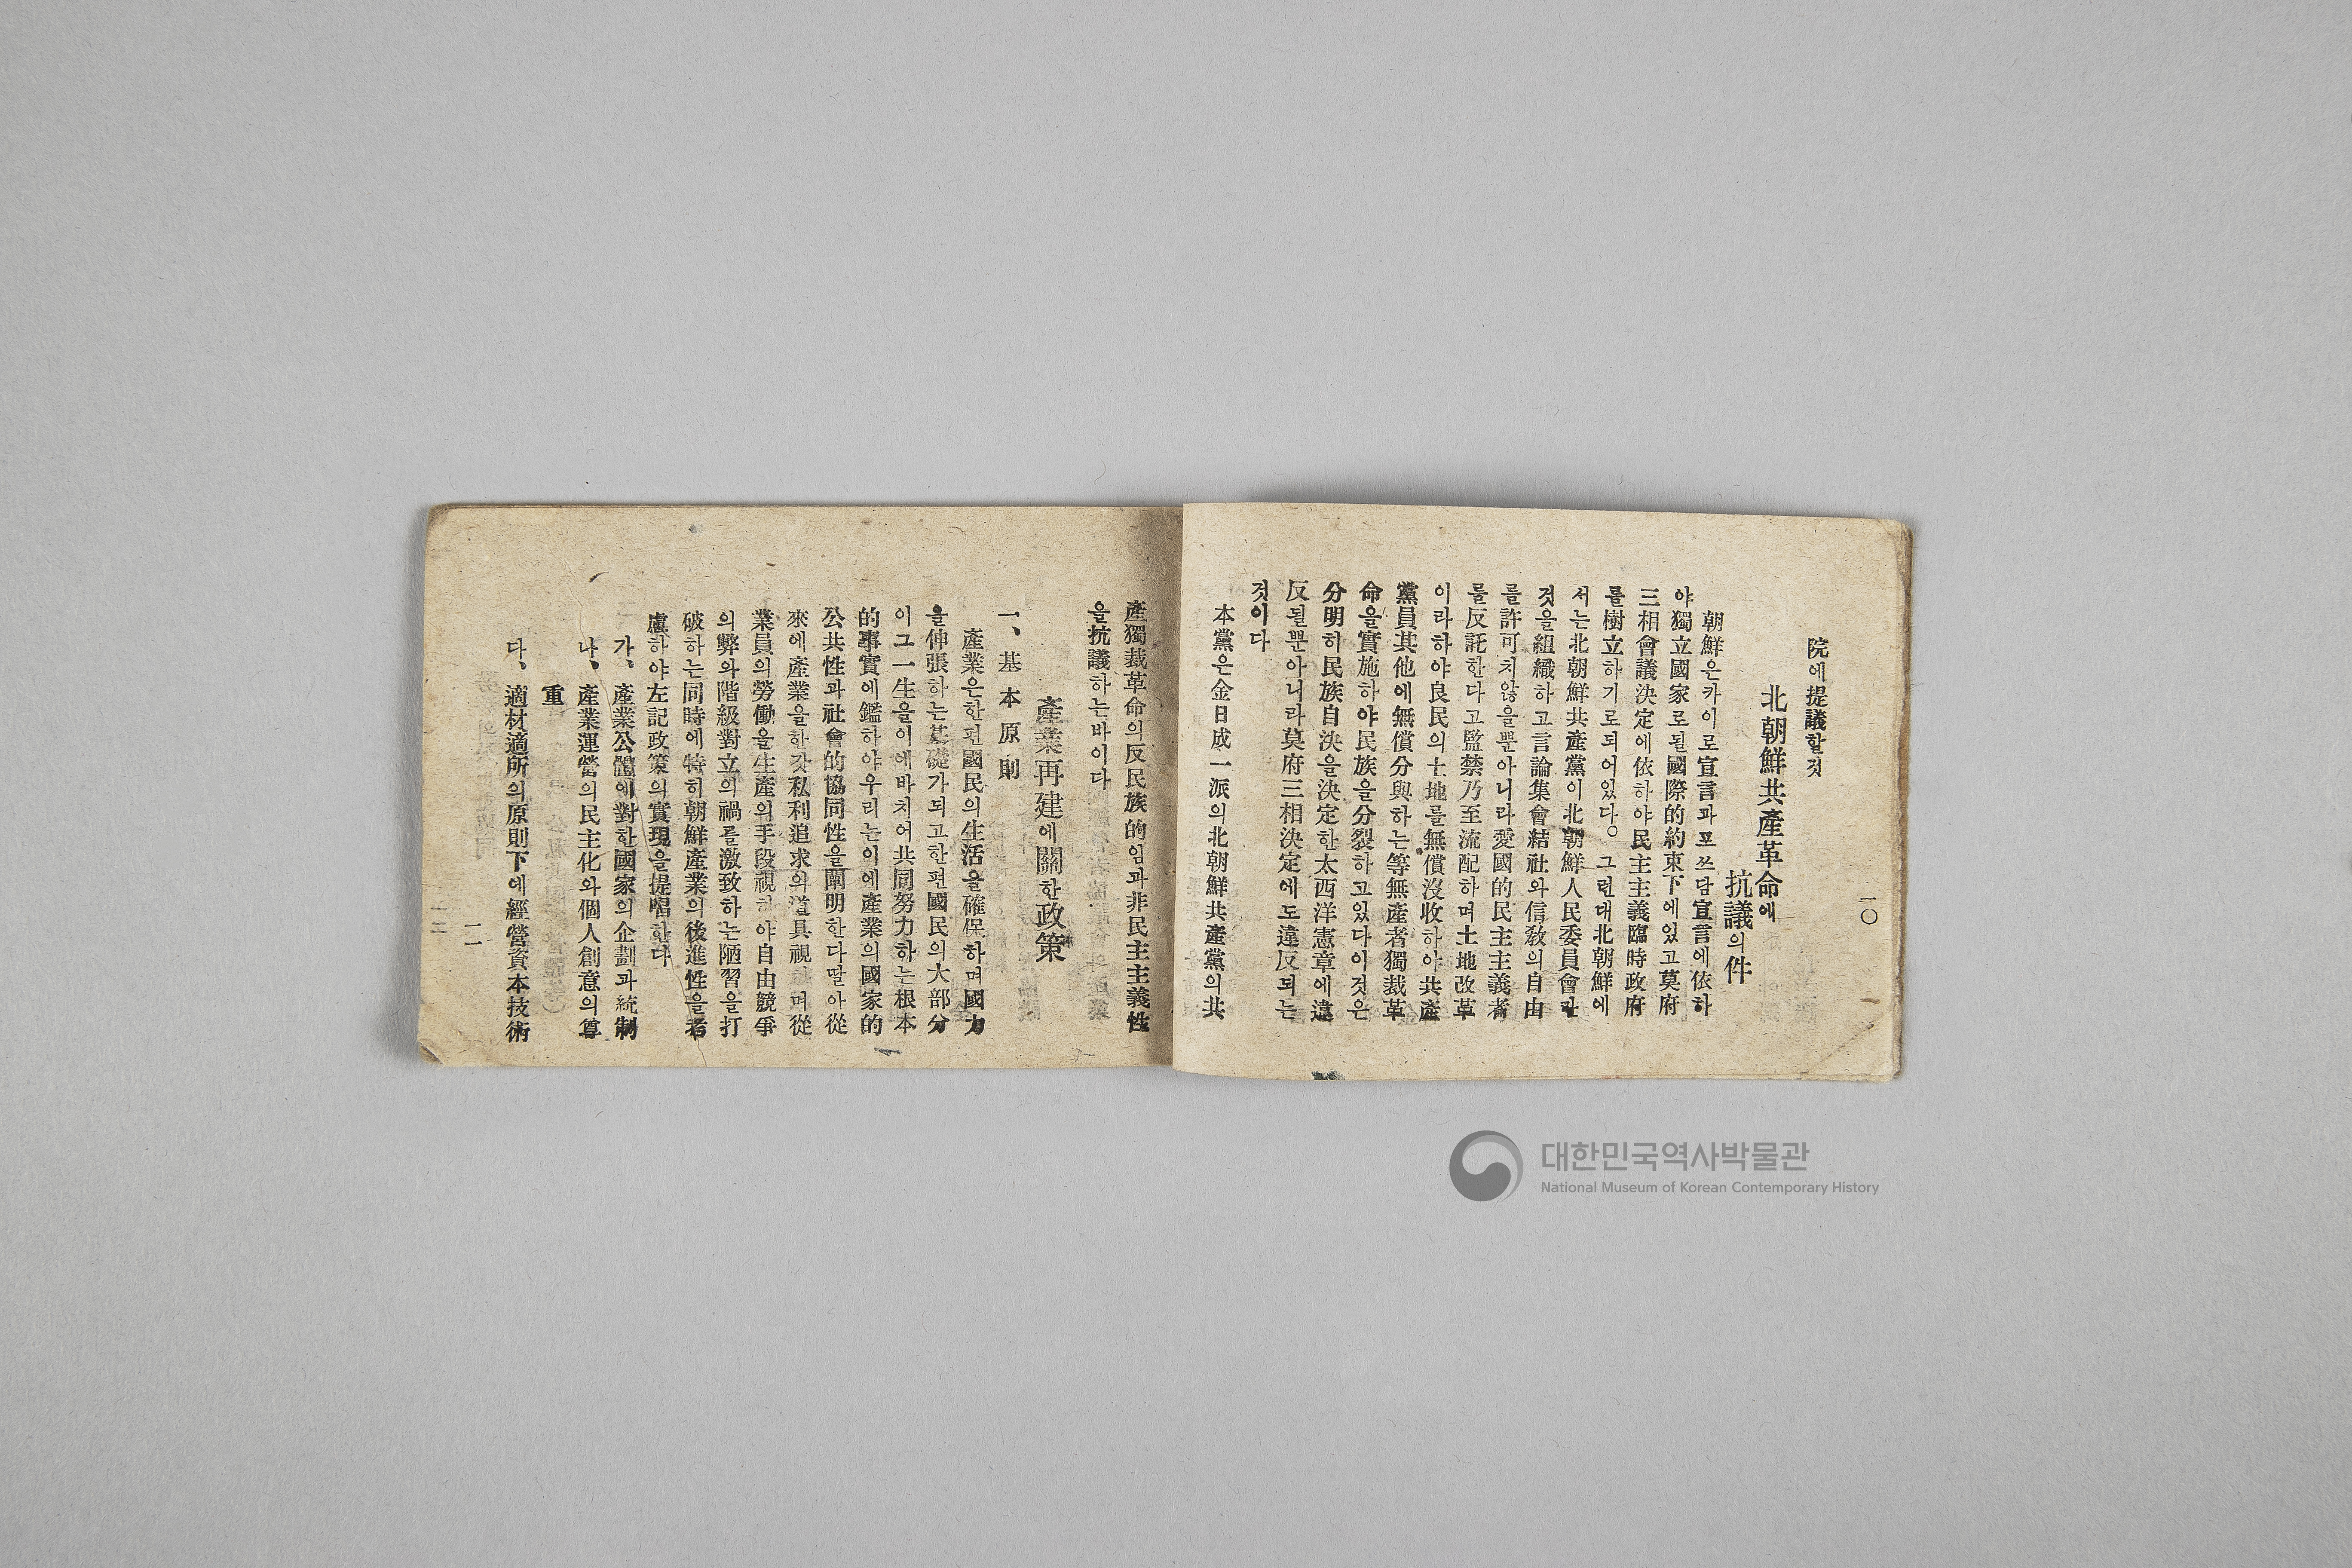 一〇
院에提議할것
北朝鮮共產革命에
抗議의件
朝鮮은카이로宣言과포쓰담宣言에依하
야獨立國家로될國際的約束下에있고莫府
三相會議決定에依하야民主主義臨時政府
를樹立하기로되어있다。그런대北朝鮮에
서는北朝鮮共產黨이北朝鮮人民委員會란
것을組織하고言論集會結社와信敎의自由
를許可치않을뿐아니라愛國的民主主義者
를反託한다고監禁乃至流配하며土地改革
이라하야良民의土地를無償沒收하야共產
黨員其他에無償分與하는等無產者獨裁革
命을實施하야民族을分裂하고있다이것은
分明히民族自決을決定한太西洋憲章에違
反될뿐아니라莫府三相決定에도違反되는
것이다
本黨은金日成一派의北朝鮮共產黨의共
產獨裁革命의反民族的임과非民主主義性
을抗議하는바이다
產業再建에關한政策
一、基本原則
產業은한편國民의生活을確保하며國力
을伸張하는基礎가되고한편國民의大部分
이그一生을이에바치어共同努力하는根本
的事實에鑑하야우리는이에產業의國家的
公共性과社會的協同性을闡明한다딸아從
來에產業을한갓私利追求의道具視하며從
業員의勞働을生產의手段視하야自由競爭
의弊와階級對立의禍를激致하는陋習을打
破하는同時에特히朝鮮產業의後進性을考
慮하야左記政策의實現을提唱한다
가、產業公體에對한國家의企劃과統制
나、產業運營의民主化와個人創意의尊
重
다、適材適所의原則下에經營資本技術
一一
대한민국역사박물관
National Museum of Korean Contemporary History